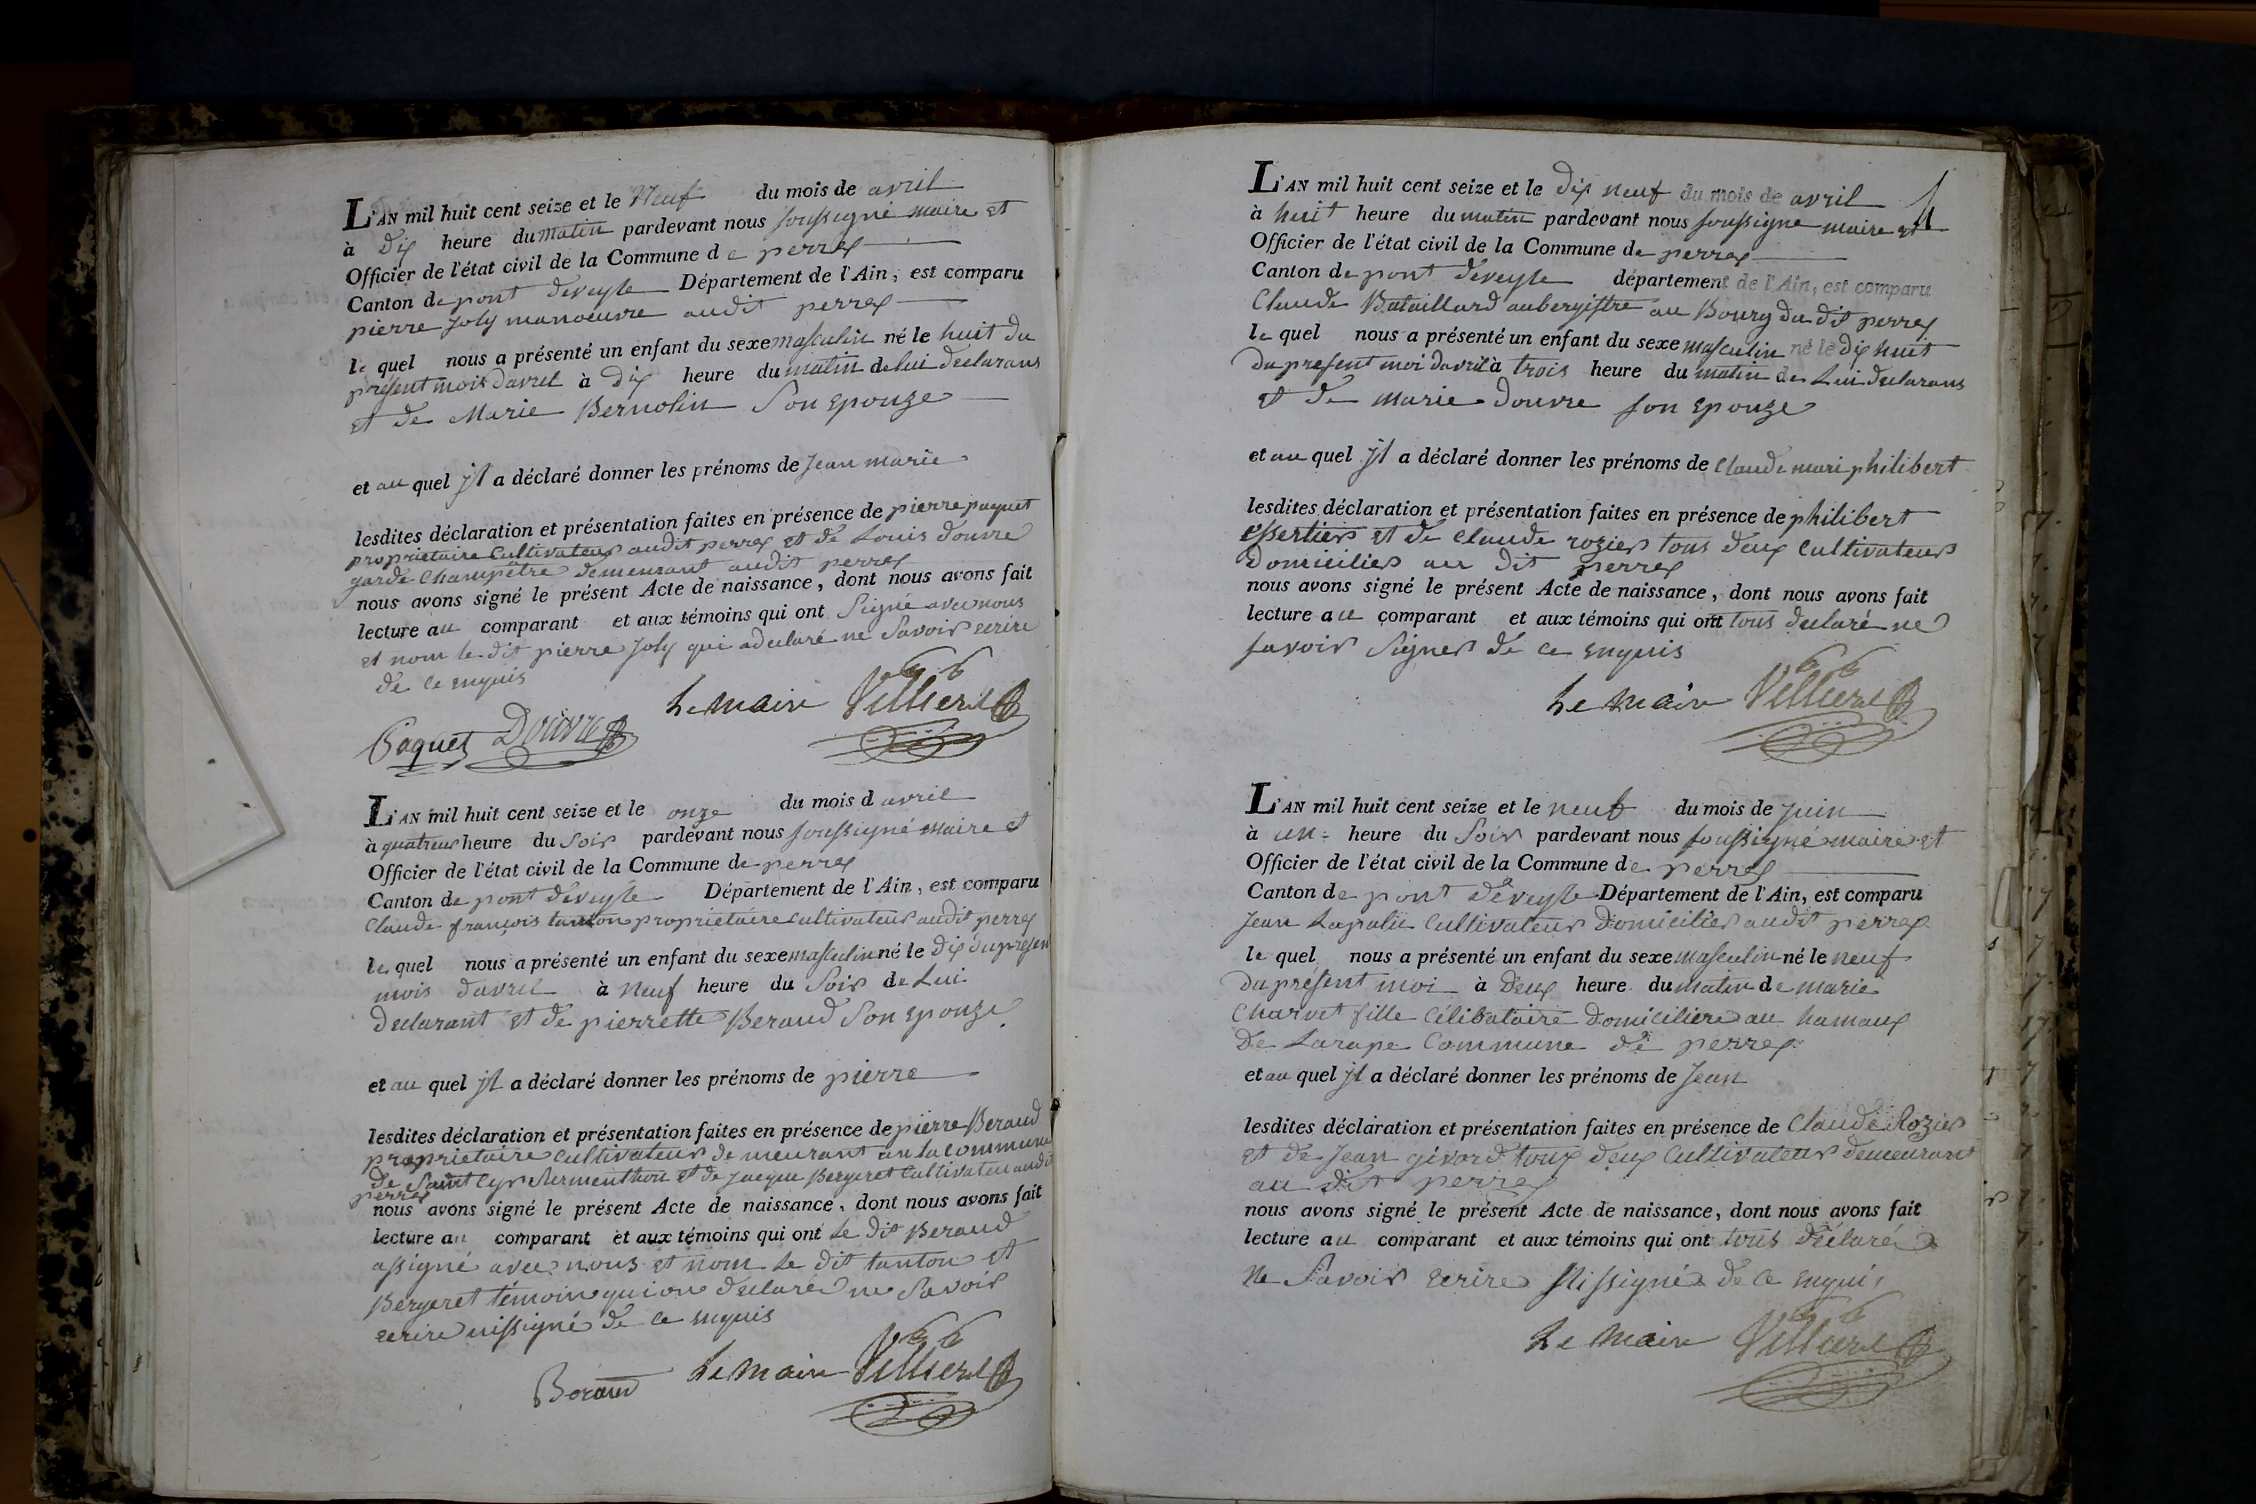 L'AN mil huit cent seize et le Neuf du mois de avril
à dix heure du matin pardevant nous soussigné maire et
Officier de l'état civil de la Commune de perrex
Canton de pont deveyle Département de l'Ain, est comparu
pierre joly manoeuvre audit perrex
le quel nous a présenté un enfant du sexe masculin né le huit du
présent mois davril à dix heure du matin de lui declarans
et de Marie Bernolin Son epouze
et au quel jl a déclaré donner les prénoms de jean marie
lesdites déclaration et présentation faites en présence de pierre paquet
proprietaire Cultivateur audit perrex et de Louis douvre
garde Champêtre demeurant audit perrex
nous avons signé le présent Acte de naissance, dont nous avons fait
lecture au comparant et aux témoins qui ont Signé avec nous
et nom le dit pierre joly qui a declaré ne Savoir ecrire
de ce enquis
Le maire Villierd
Paquet Douvre
L'AN mil huit cent seize et le onze du mois d avril
à quatreur heure du Soir pardevant nous soussigné maire et
Officier de l'état civil de la Commune de perrex
Canton de pont deveyle Département de l'Ain, est comparu
Claude françois tanton proprietaire cultivateur audit perrex
le quel nous a présenté un enfant du sexe masculin né le dix du présent
mois davril à neuf heure du Soir de Lui
declarant et de pierrette Beraud Son epouze
et au quel jl a déclaré donner les prénoms de pierre
lesdites déclaration et présentation faites en présence de pierre Beraud
proprietaire cultivateur de meurant en la commune
de Saint Cyr Surmenthon et de jacque Bergeret Cultivateur audit
perrex
nous avons signé le présent Acte de naissance, dont nous avons fait
lecture au comparant et aux témoins qui ont le dit Beraud
assigné avec nous et nom le dit tanton et
Bergeret témoin qui on declaré ne Savoir
ecrire nissigné de ce enquis
Le maire Villierd
Beraud
L'AN mil huit cent seize et le dix neuf du mois de avril
à huit heure du matin pardevant nous soussigné maire et
Officier de l'état civil de la Commune de perrex
Canton de pont deveyle département de l'Ain, est comparu
Claude Bataillard aubergistre au Bourg du dit perrex
le quel nous a présenté un enfant du sexe masculin né le dix huit
du present moi davril à trois heure du matin de Lui declarans
et de marie douvre son epouze
et au quel jl a déclaré donner les prénoms de Claude mari philibert
lesdites déclaration et présentation faites en présence de philibert
essertier et de Claude rozier tous deux Cultivateur
domicilier au dit perrex
nous avons signé le présent Acte de naissance, dont nous avons fait
lecture au comparant et aux témoins qui ont tous declaré ne
savoir Signer de ce enquis
Le maire Villierd
L'AN mil huit cent seize et le neuf du mois de juin
à un heure du Soir pardevant nous soussigné maire et
Officier de l'état civil de la Commune de perrex
Canton de pont deveyle Département de l'Ain, est comparu
jean Lapalu Cultivateur domicilier audit perrex
le quel nous a présenté un enfant du sexe masculin né le neuf
du présent moi à deux heure du matin de marie
Charvet fille célibataire domicilière au hamaux
de Larape Commune de perrex
et au quel jl a déclaré donner les prénoms de jean
lesdites déclaration et présentation faites en présence de Claude Rozier
et de jean givord toux deux Cultivateur demeurant
au dit perrex
nous avons signé le présent Acte de naissance, dont nous avons fait
lecture au comparant et aux témoins qui ont tous déclaré
ne Savoir ecrire nissigné de ce enquis
Le maire Villierd